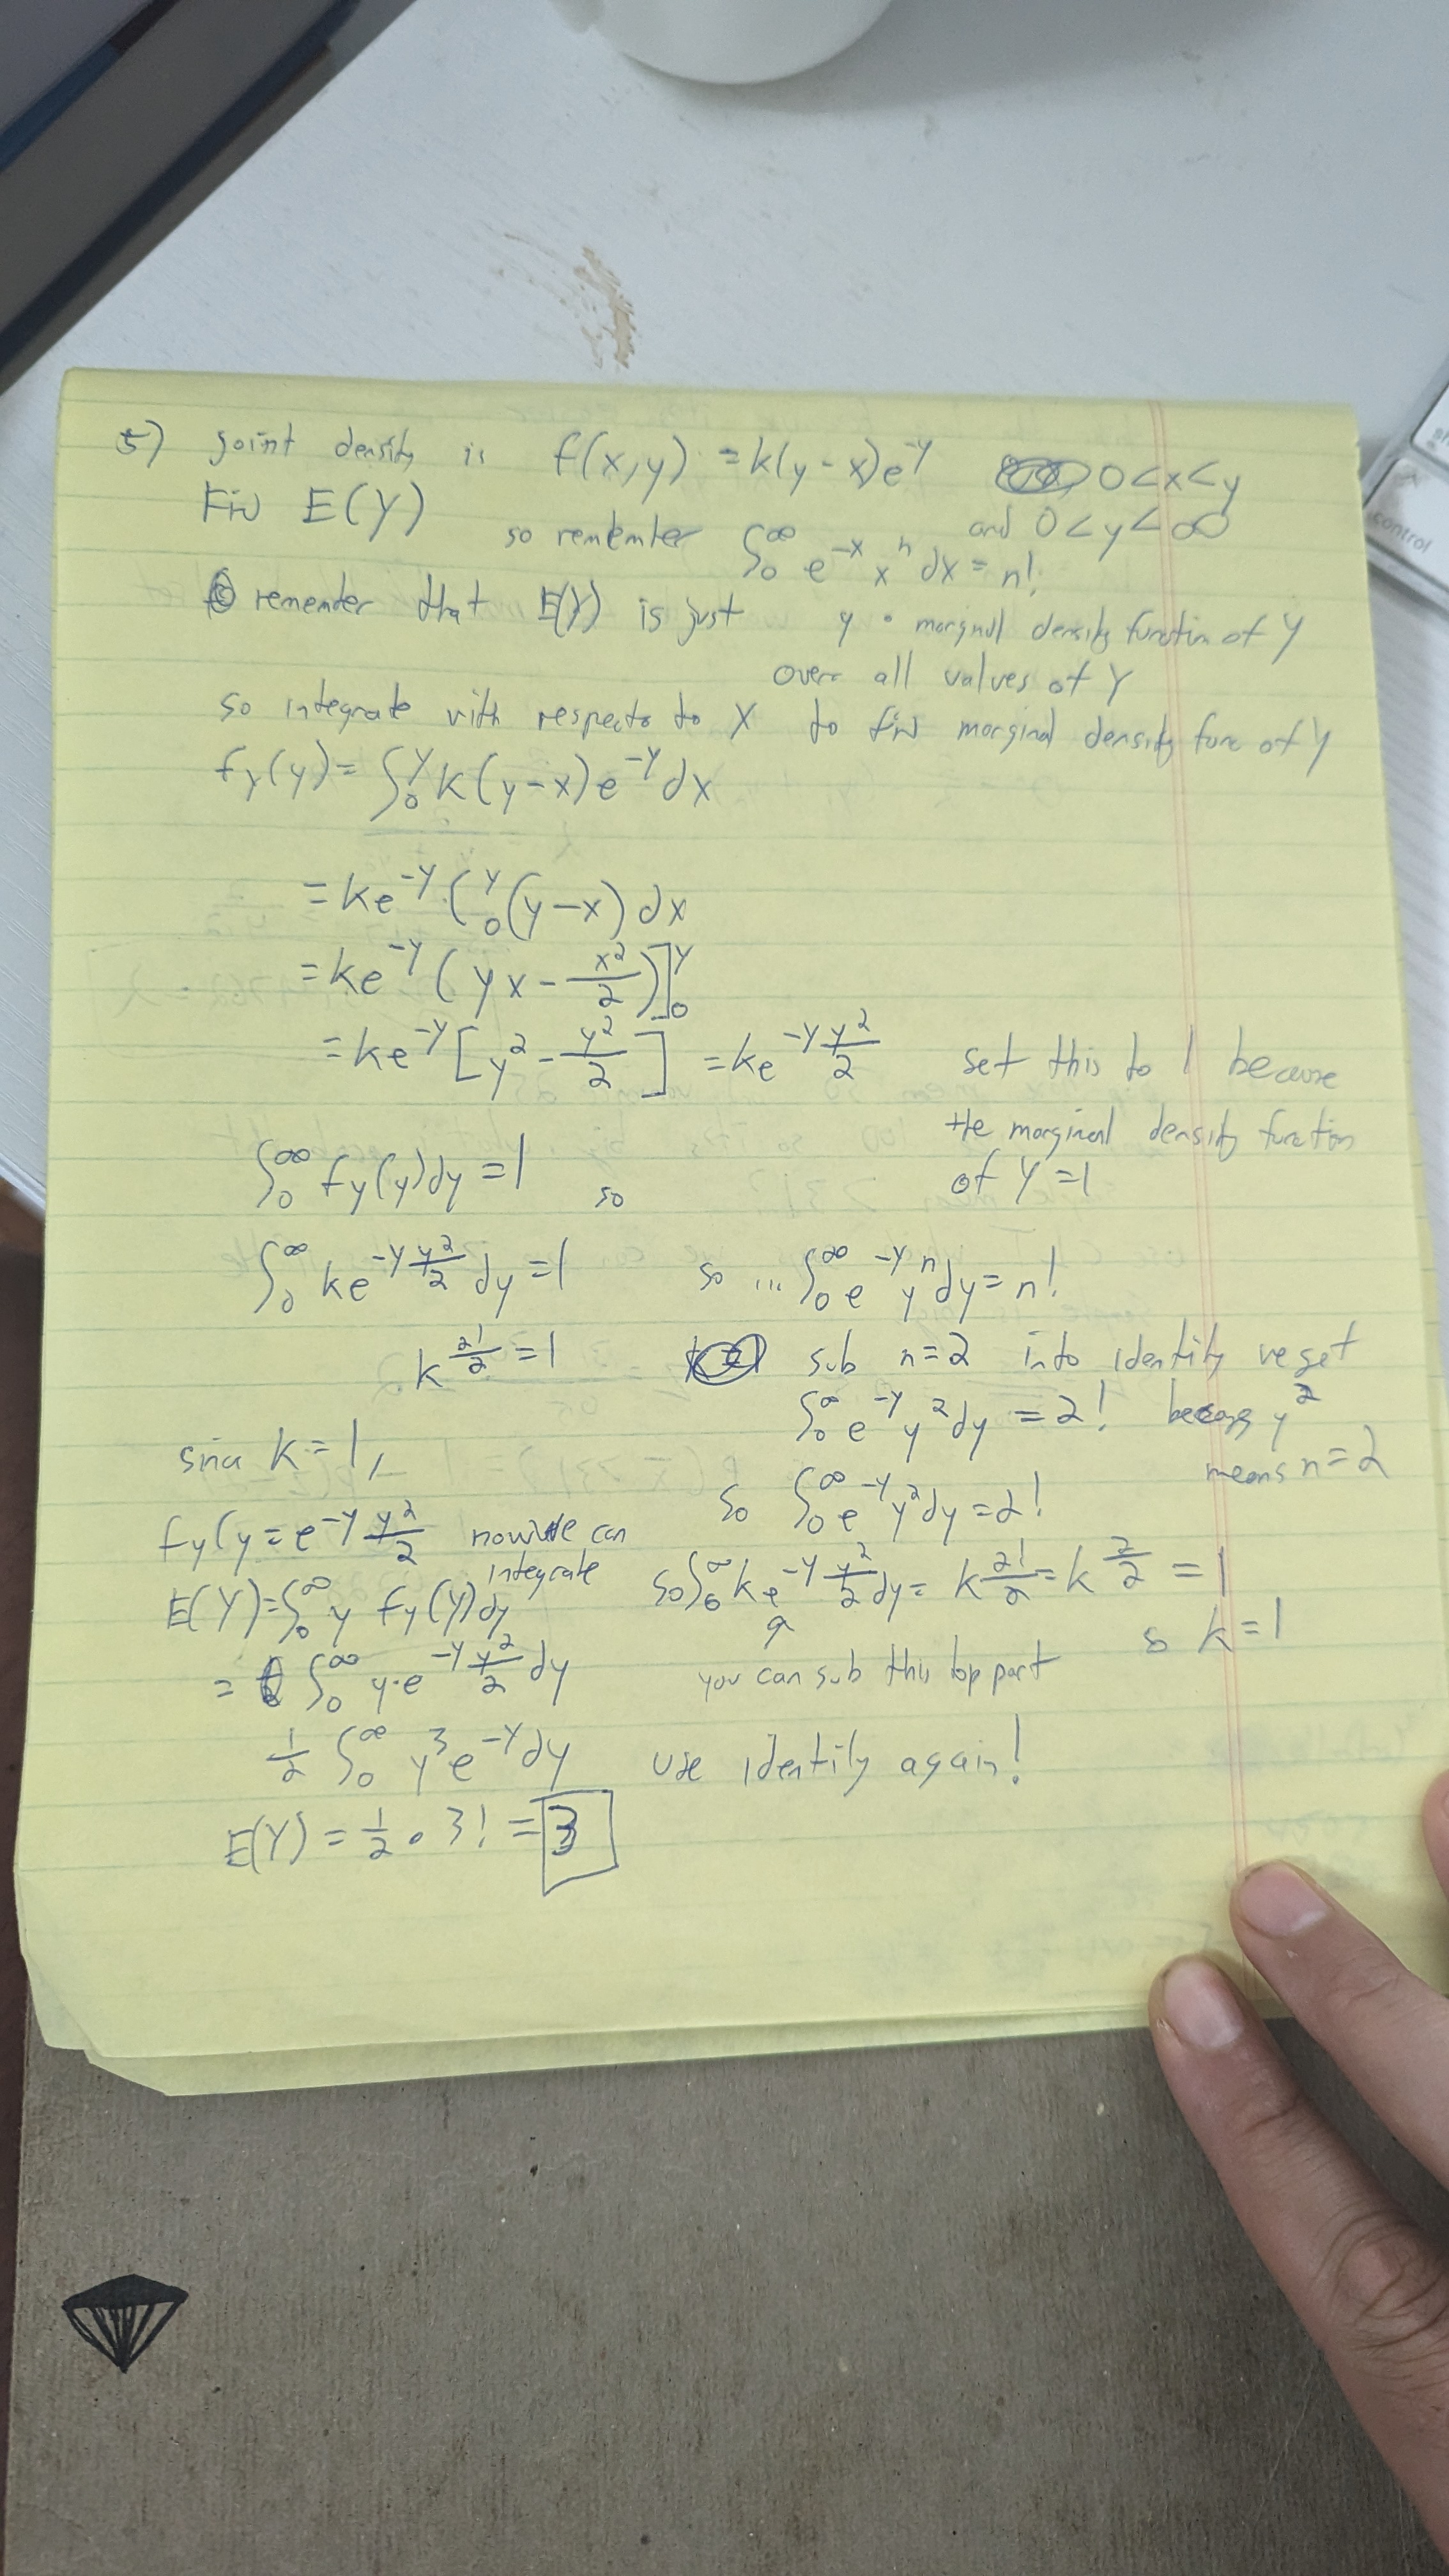 5) joint density is f(x,y) = k(y-x)e^-y 0<x<y
Fin E(Y) and 0<y<∞
so remember ∫0^∞ e^-x x^n dx = n!
remember that E(Y) is just y • marginal density function of Y
over all values of Y
so integrate with respects to X to fin marginal density func of Y
fy(y) = ∫0^y k(y-x)e^-y dx
= ke^-y (0^y (y-x) dx
= ke^-y (yx - x²/2)]0^y
= ke^-y [y² - y²/2] = ke^-y y²/2 set this to 1 because
the marginal density function
of Y = 1
∫0^∞ fy(y)dy = 1 so
∫0^∞ ke^-y y²/2 dy = 1 so ... ∫0^∞ e^-y y^n dy = n!
k 2!/2 = 1 sub n=2 into identity we get
∫0^∞ e^-y y² dy = 2! because y²
means n=2
since k=1,
so ∫0^∞ e^-y y² dy = 2!
fy(y = e^-y y²/2 now we can
integrate
E(Y) = ∫0^∞ y fy(y)dy
so ∫0^∞ ke^-y y²/2 dy = k 2!/2 = k 2/2 = 1
so k=1
= ∫0^∞ y·e^-y y²/2 dy you can sub this top part
1/2 ∫0^∞ y³e^-y dy use identity again!
E(Y) = 1/2 • 3! = 3
control